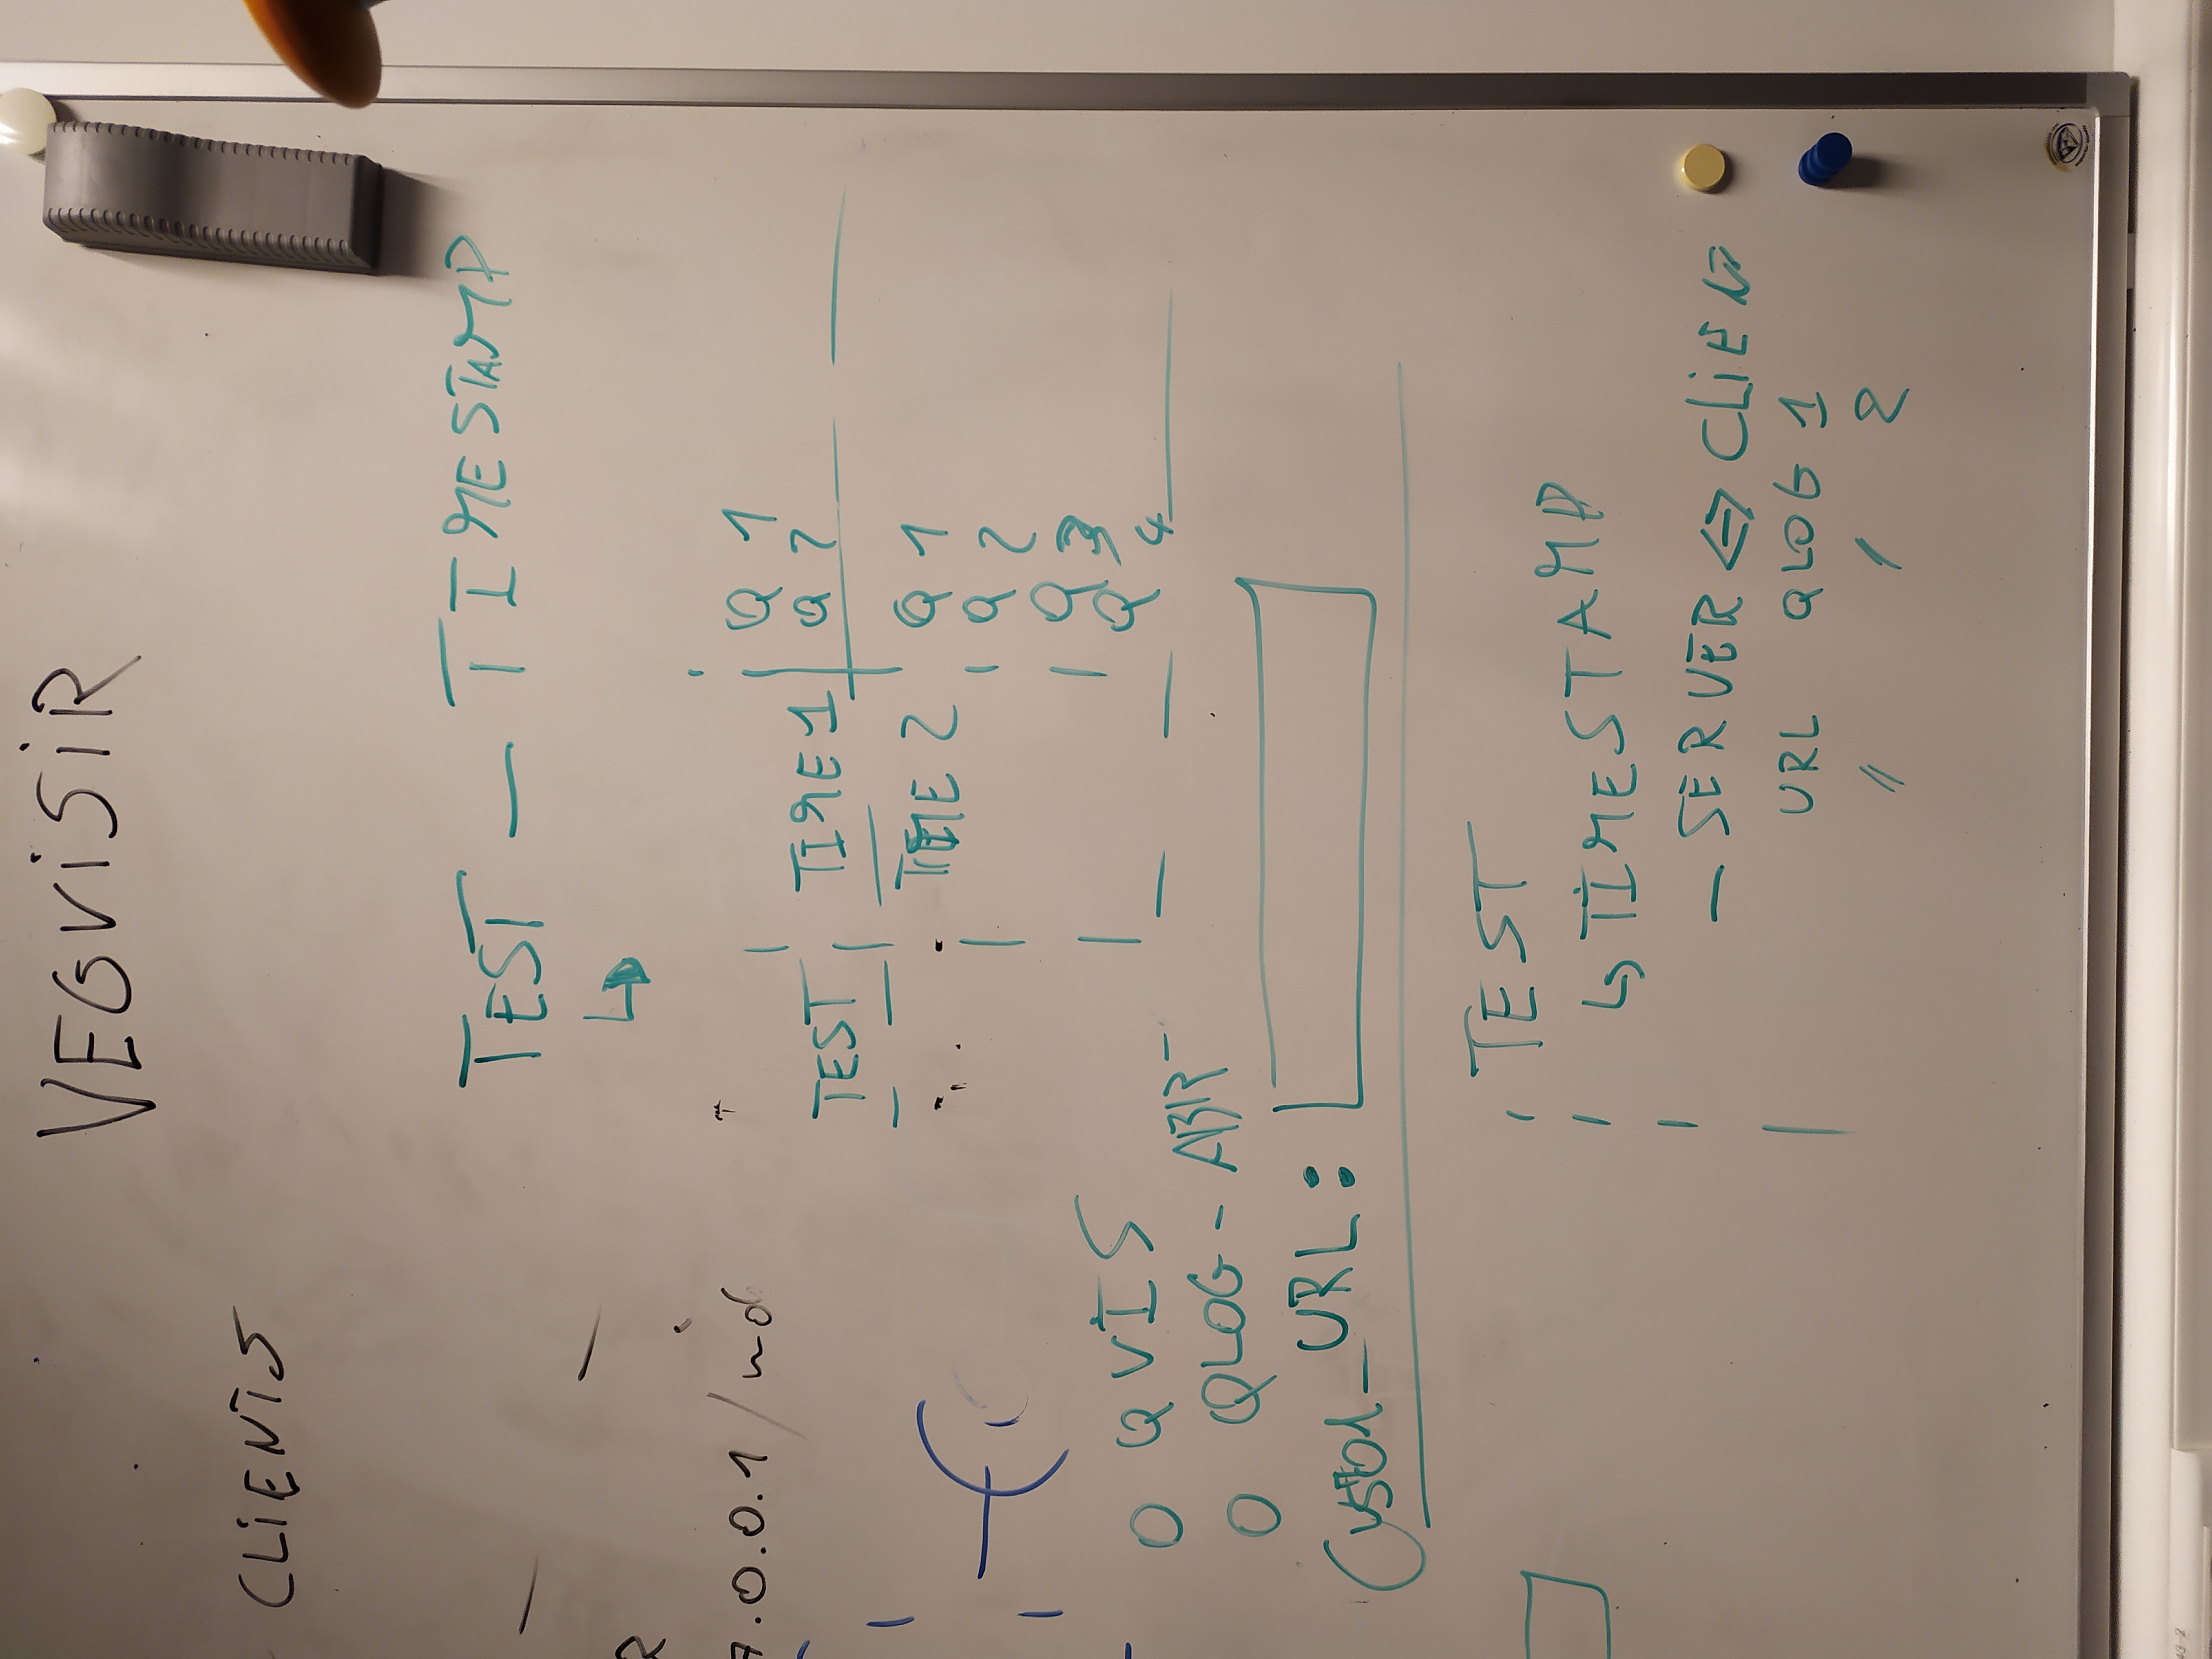 VEGVISIR
CLIENTS
TEST — TIMESTAMP
R
7.0.0.1/
Q 1
TEST TIME 1 Q 2
TIME 2 Q 1
Q 2
Q 3
Q 4
O QVIS
O QLOG - ABR
URL :
TEST
↳ TIMESTAMP
— SERVER <=> CLIENT
URL QLOG 1
〃 〃 2